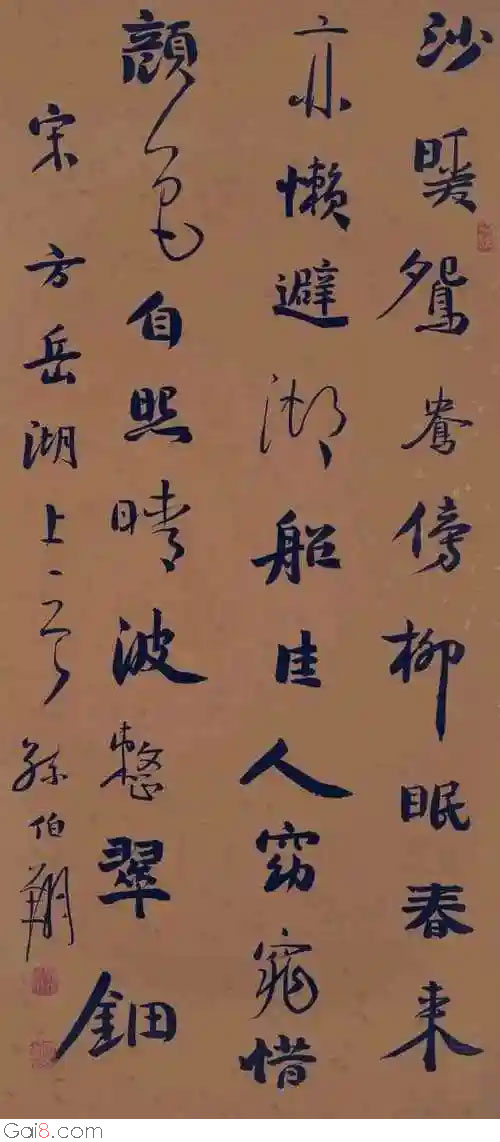 沙暖鴛鴦傍柳眠春来
亦懶避湖船佳人窈窕惜
顔色自照晴波整翠鈿
宋方岳湖上一首孫伯翔
Gai8.com